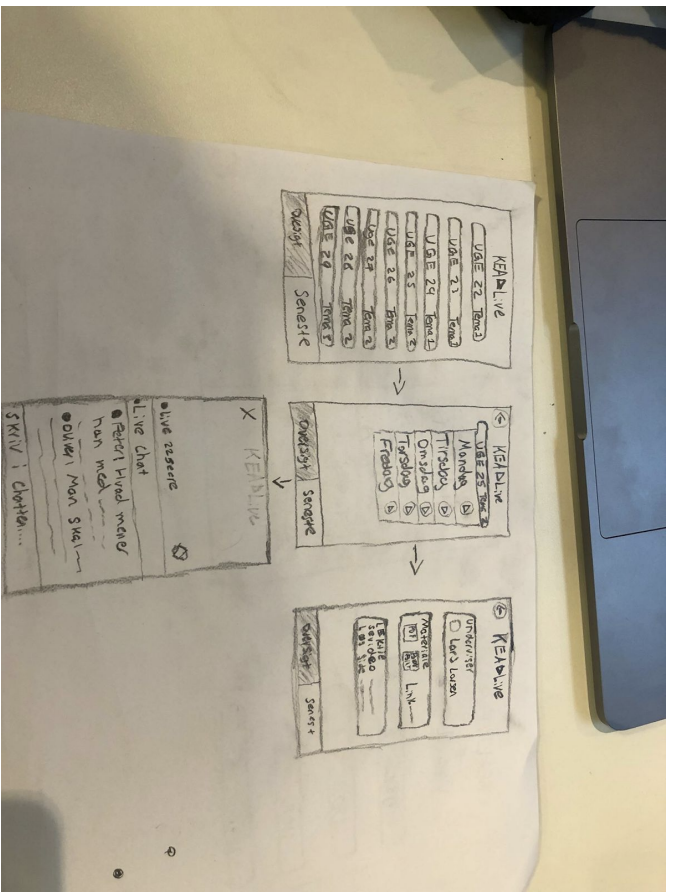 KEA Live
UGE 22 Tema 1
UGE 23 Tema 1
UGE 24 Tema 1
UGE 25 Tema 2
UGE 26 Tema 2
Uge 27 Tema 2
UGE 28 Tema 2
UGE 29 Tema 3
Oversigt Seneste
KEA Live
UGE 25 Tema 2
Mandag
Tirsdag
Onsdag
Torsdag
Fredag
Oversigt Seneste
KEA Live
Underviser
Lars Larsen
Materiale
PDF Link
LEKTIE
Se video
Læs side
Oversigt Senest
X KEA Live
Live 22 seere
Live Chat
Peter: Hvad mener
han med
Oliver: Man skal
Skriv i chatten....